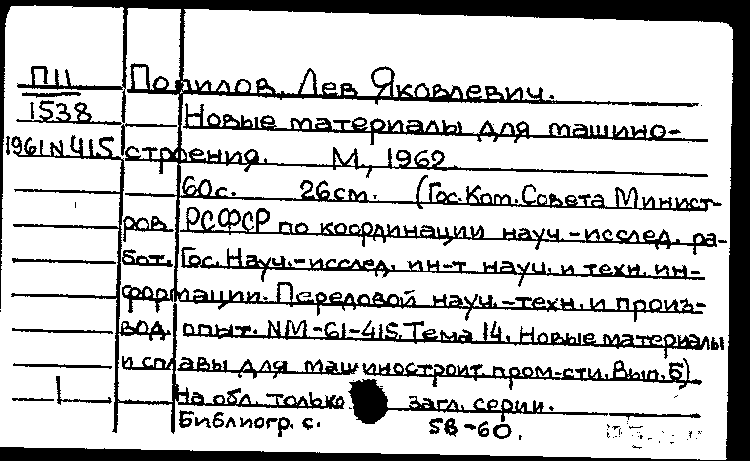 П11 Попилов, Лев Яковлевич.
1538 Новые материалы для машино-
1961 N 415 строения. М., 1962.
60 с. 26 cm. (Гос. Ком. Совета Минист-
ров РСФСР по координации науч.-исслед. ра-
бот. Гос. Науч.-исслед. ин-т науч. и техн. ин-
формации. Передовой науч.-техн. и произ-
вод. опыт. NM-61-415. Тема 14. Новые материалы
и сплавы для машиностроит пром-сти. Вып. 5)
1 На обл. только загл. серии.
Библиогр. с. 58-60.